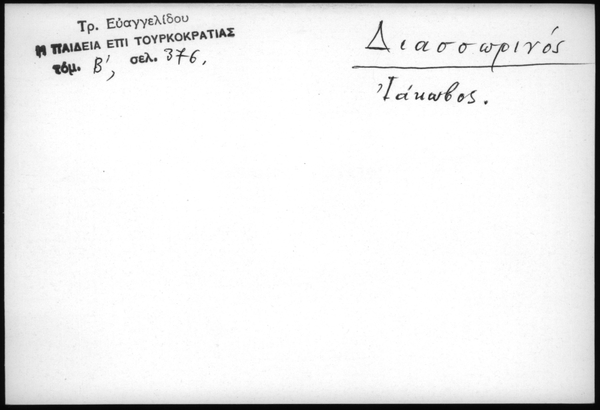 Τρ. Εὐαγγελίδου
Η ΠΑΙΔΕΙΑ ΕΠΙ ΤΟΥΡΚΟΚΡΑΤΙΑΣ
τόμ. Β', σελ. 376.
Διασσωρινός
Ἰάκωβος.